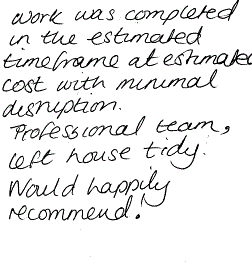 Work was completed
in the estimated
timeframe at estimated
cost with minimal
disruption.
Professional team,
left house tidy.
Would happily
recommend!